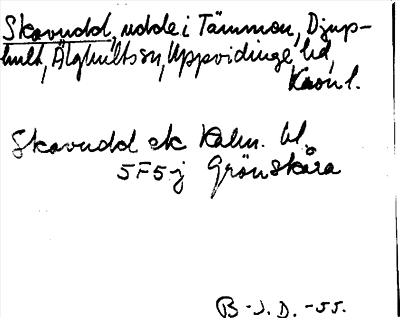 Skavudd, udde i Tämmen, Djup-
hult, Älghults sn, Uppvidinge hd,
Kron. l.
Skavudd ek Kalm. bl.
5F5j Grönskåra
B-J.D. -55.